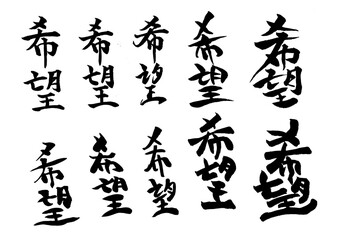 希望 希望 希望 希望 希望
希望 希望 希望 希望 希望